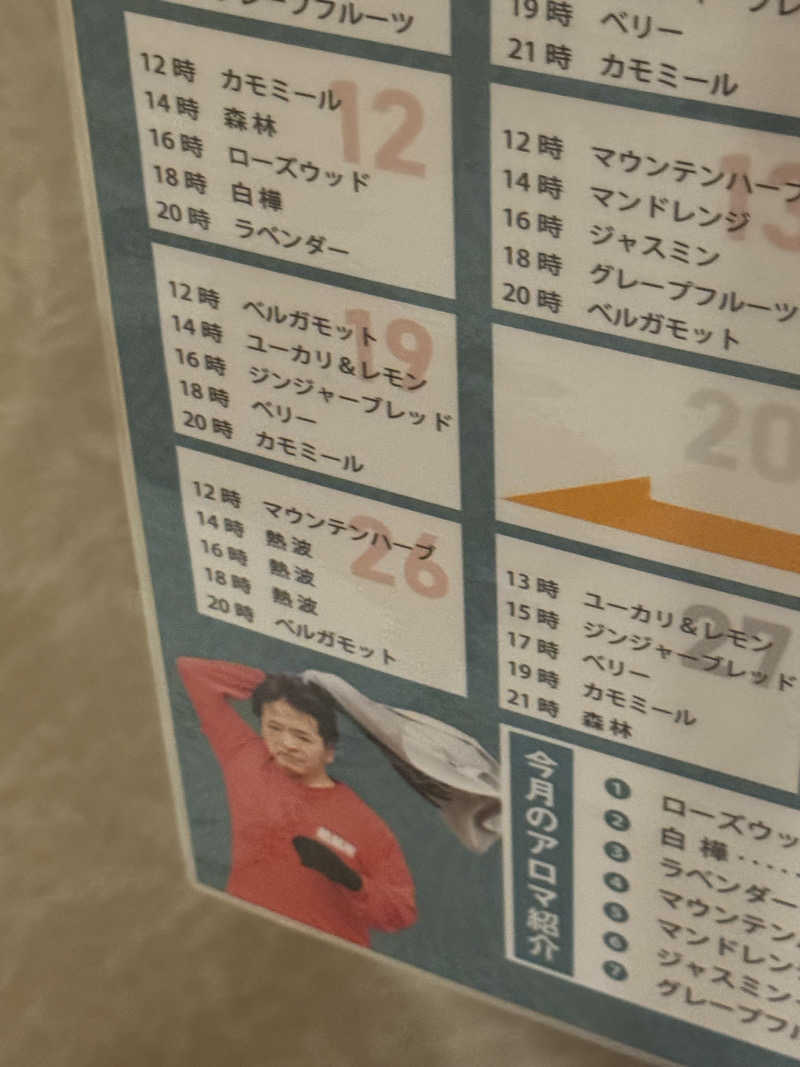 プフルーツ
19時 ベリー
21時 カモミール
12
12時 カモミール
14時 森林
16時 ローズウッド
18時 白樺
20時 ラベンダー
13
12時 マウンテンハーブ
14時 マンドレンジ
16時 ジャスミン
18時 グレープフルーツ
20時 ベルガモット
19
12時 ベルガモット
14時 ユーカリ&レモン
16時 ジンジャーブレッド
18時 ベリー
20時 カモミール
20
26
12時 マウンテンハーブ
14時 熱波
16時 熱波
18時 熱波
20時 ベルガモット
27
13時 ユーカリ&レモン
15時 ジンジャーブレッド
17時 ベリー
19時 カモミール
21時 森林
今月のアロマ紹介
1 ローズウッ
2 白樺・・・・
3 ラベンダー
4 マウンテン
5 マンドレン
6 ジャスミン
7 グレープフル